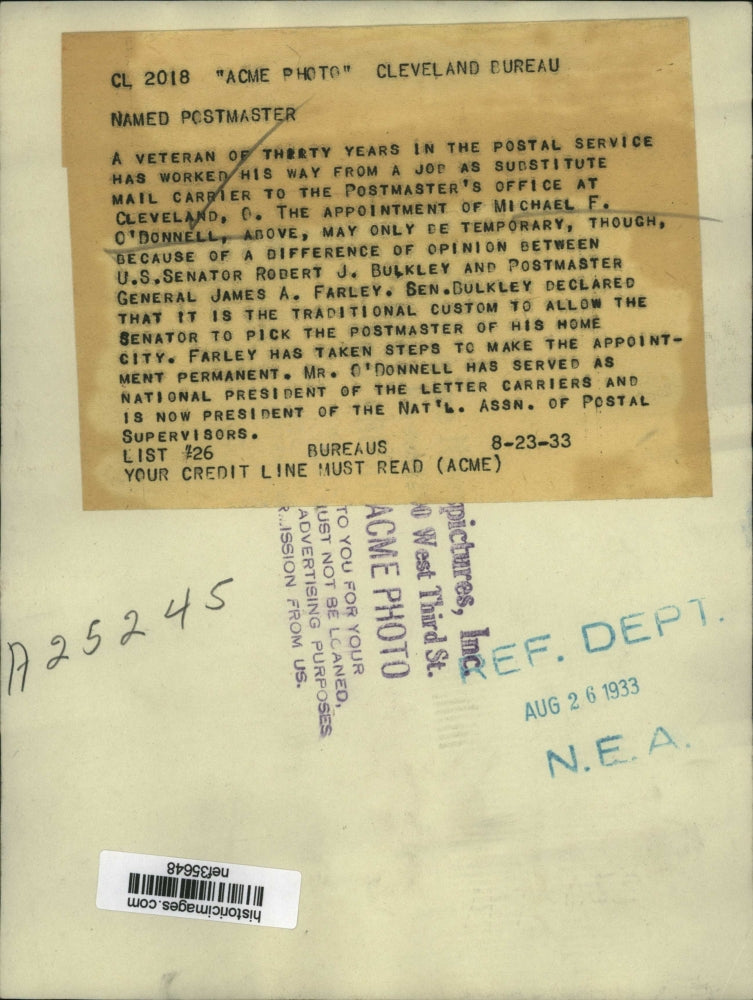 CL 2018 "ACME PHOTO" CLEVELAND BUREAU
NAMED POSTMASTER
A VETERAN OF THIRTY YEARS IN THE POSTAL SERVICE
HAS WORKED HIS WAY FROM A JOB AS SUBSTITUTE
MAIL CARRIER TO THE POSTMASTER'S OFFICE AT
CLEVELAND, O. THE APPOINTMENT OF MICHAEL F.
O'DONNELL, ABOVE, MAY ONLY BE TEMPORARY, THOUGH,
BECAUSE OF A DIFFERENCE OF OPINION BETWEEN
U.S.SENATOR ROBERT J. BULKLEY AND POSTMASTER
GENERAL JAMES A. FARLEY. SEN.BULKLEY DECLARED
THAT IT IS THE TRADITIONAL CUSTOM TO ALLOW THE
SENATOR TO PICK THE POSTMASTER OF HIS HOME
CITY. FARLEY HAS TAKEN STEPS TO MAKE THE APPOINT-
MENT PERMANENT. MR. O'DONNELL HAS SERVED AS
NATIONAL PRESIDENT OF THE LETTER CARRIERS AND
IS NOW PRESIDENT OF THE NAT'L. ASSN. OF POSTAL
SUPERVISORS.
LIST #26 BUREAUS 8-23-33
YOUR CREDIT LINE MUST READ (ACME)
pictures, Inc.
West Third St.
ACME PHOTO
TO YOU FOR YOUR
UST NOT BE LOANED,
ADVERTISING PURPOSES
ISSION FROM US.
A25245
REF. DEPT.
AUG 26 1933
N.E.A.
historicimages.com
nef35648